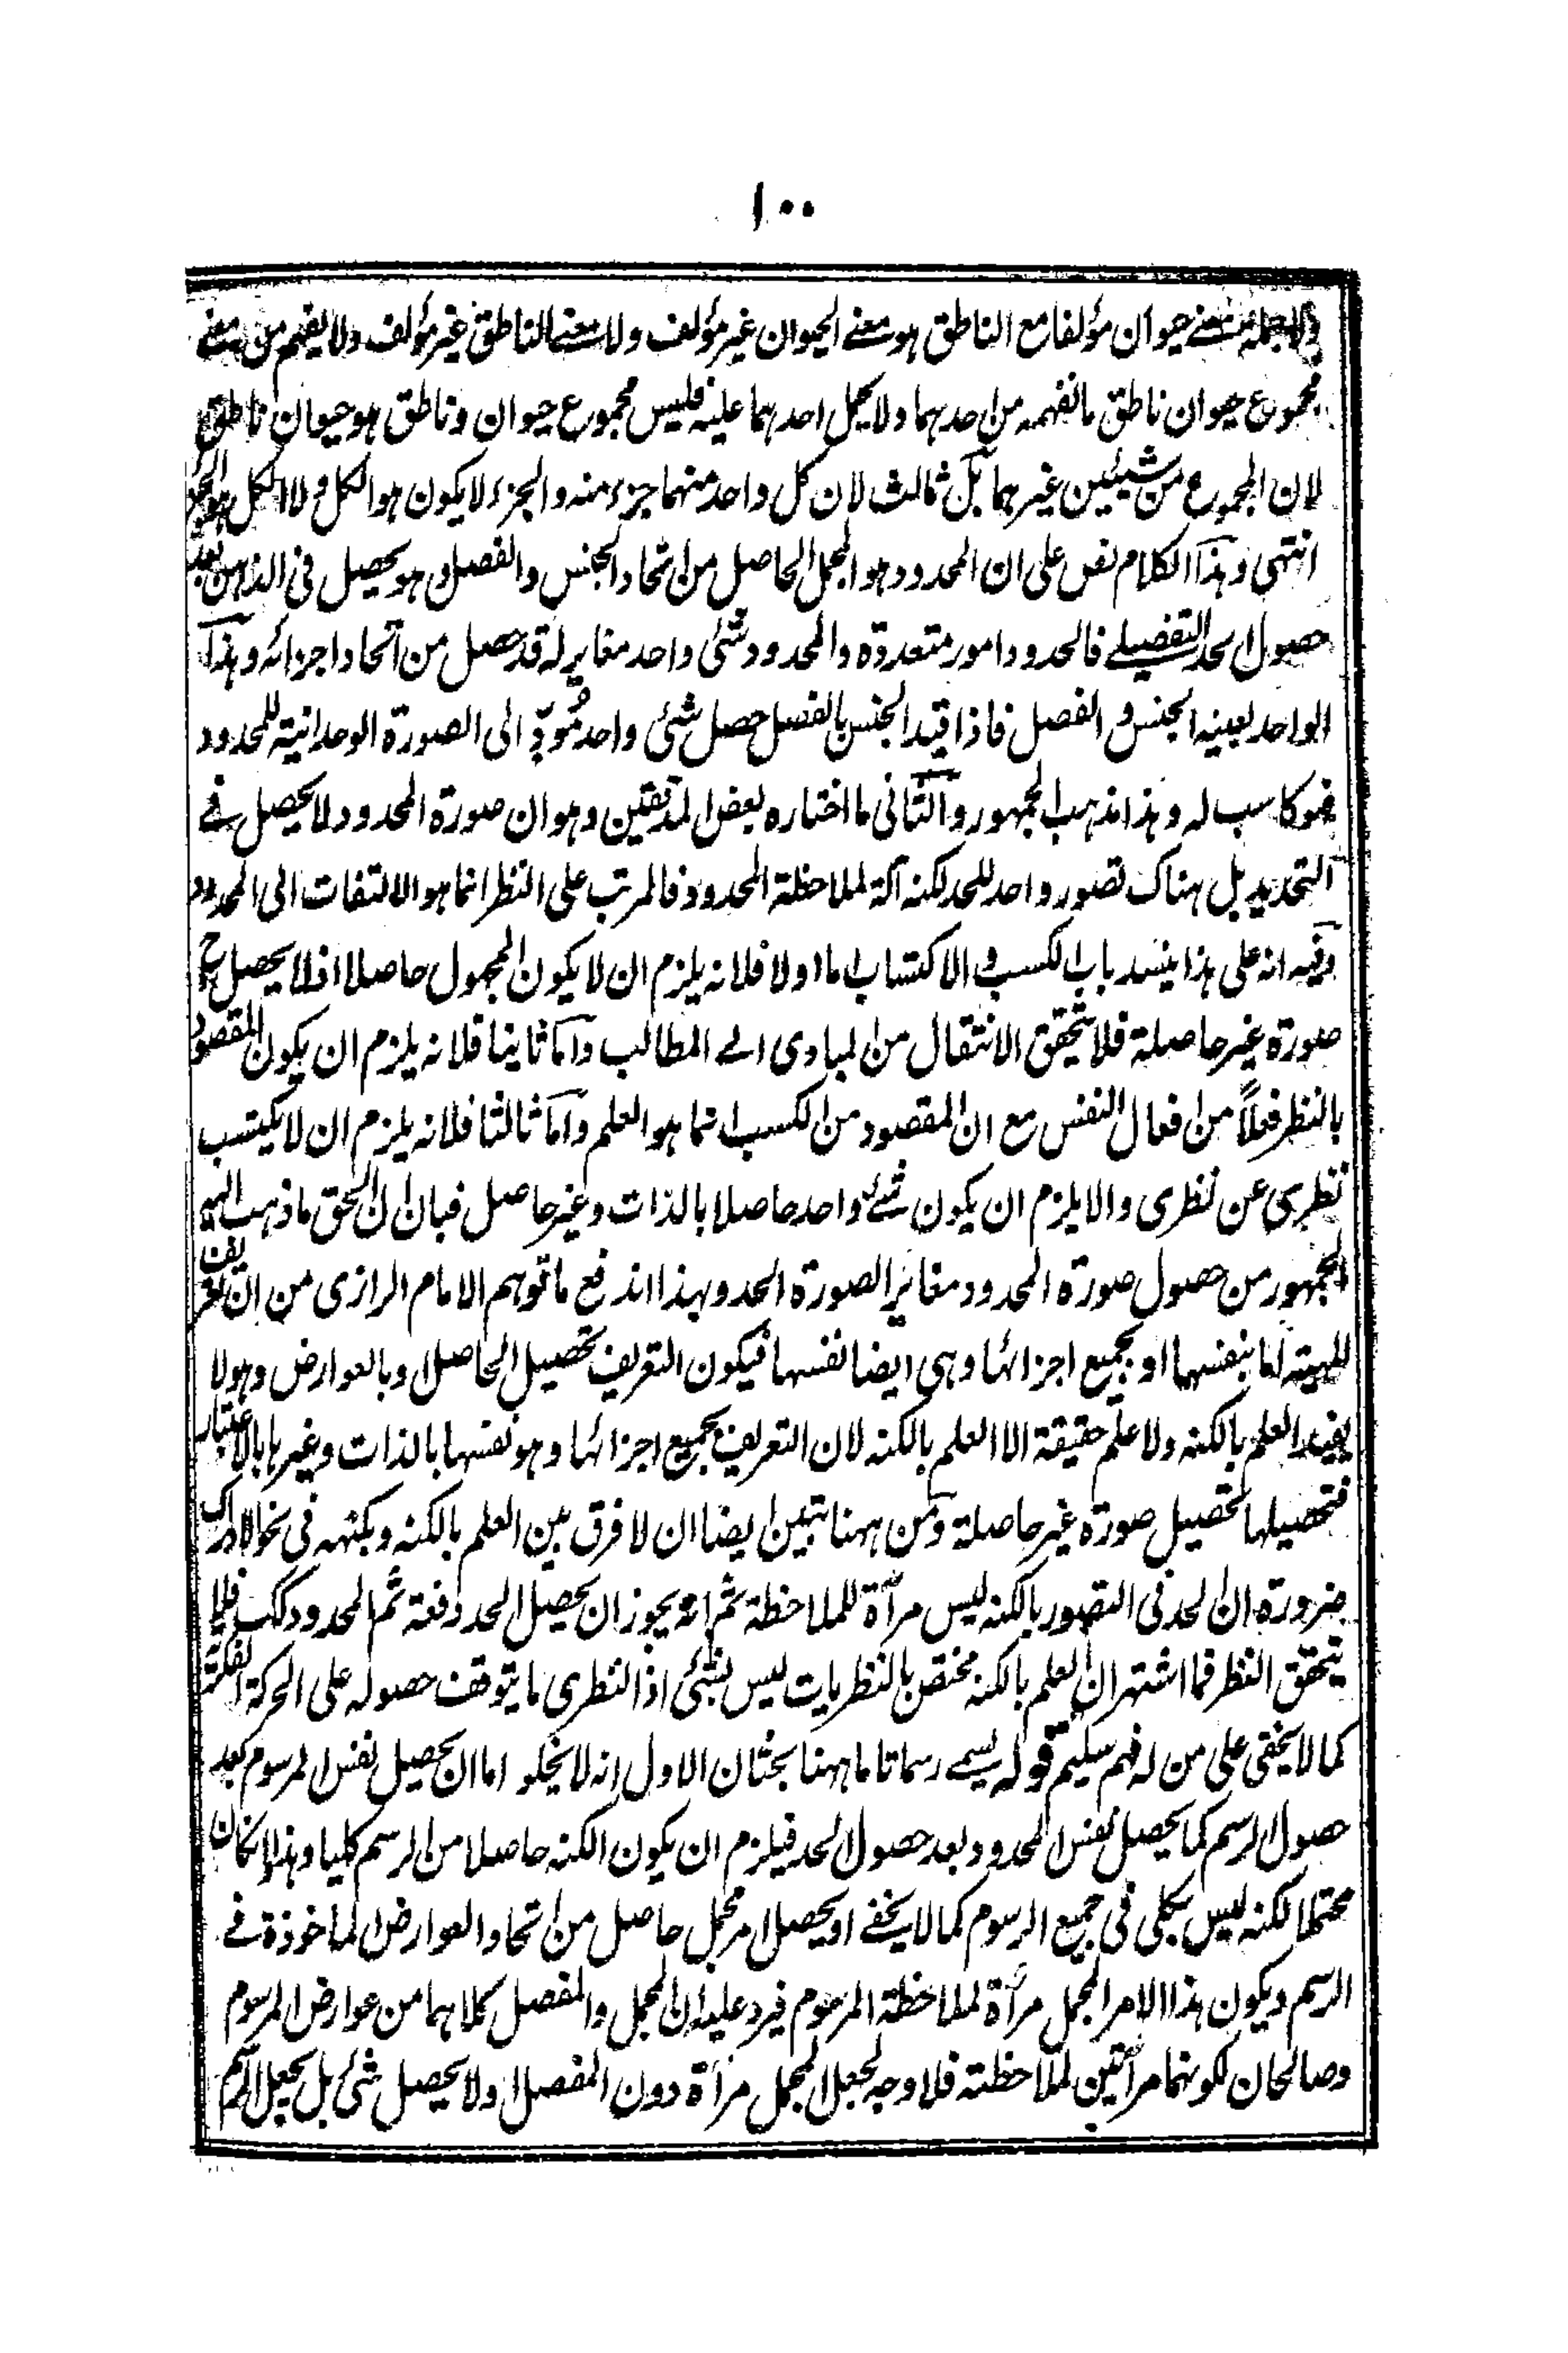 ١٠٠
وبالجملة معنى حيوان مؤلفا مع الناطق هو معنے الحيوان غير مؤلف ولا معنے الناطق غير مؤلف ولا يفهم من معنے
مجموع حيوان ناطق ما نفهمه من احدهما ولا يحمل احدهما عليه فليس مجموع حيوان وناطق هو حيوان ناطق
لان المجموع من شيئين غيرهما بل ثالث لان كل واحد منهما جزء منه والجزء لا يكون هو الكل ولا الكل هو الجزء
انتهى وهذا الكلام نص على ان المحدود هو المجمل الحاصل من اتحاد الجنس والفصل وهو يحصل فى الذهن بعد
حصول الحد التفصيلے فالحدود امور متعددة والمحدود شئ واحد مغاير له قد حصل من اتحاد اجزائه وهذا
الواحد بعينه الجنس والفصل فاذا قيد الجنس بالفصل حصل شئ واحد مُؤدٍّ الى الصورة الوحدانية للمحدود
فهو كاسب له وهذا مذهب الجمهور والثانى ما اختاره بعض المدققين وهو ان صورة المحدود لا يحصل فے
التحديد بل هناك تصور واحد للحد لكنه آلة لملاحظة المحدود فالمرتب على النظر انما هو الالتفات الى المحدود
وفيه انه على هذا ينسد باب الكسب والاكتساب اما اولا فلانه يلزم ان لا يكون المجهول حاصلا اذ لا يحصل ح
صورة غير حاصلة فلا يتحقق الانتقال من المبادى الے المطالب واما ثانيا فلانه يلزم ان يكون المقصود
بالنظر فعلاً من افعال النفس مع ان المقصود من الكسب انما هو العلم واما ثالثا فلانه يلزم ان لا يكتسب
نظرى عن نظرى والا يلزم ان يكون شئ واحد حاصلا بالذات وغير حاصل فبان ان الحق ما ذهب اليه
الجمهور من حصول صورة المحدود مغايرا لصورة الحد وبهذا اندفع ما توهم الامام الرازى من ان تعريف
المهية اما بنفسها او بجميع اجزائها وهى ايضا نفسها فيكون التعريف تحصيل الحاصل او بالعوارض وهو لا
يفيد العلم بالكنه ولا علم حقيقة الا العلم بالكنه لان التعريف بجميع اجزائها وهو نفسها بالذات وغيرها بالاعتبار
فتحصيلها تحصيل صورة غير حاصلة ومن ههنا تبين ايضا ان لا فرق بين العلم بالكنه وبكنهه فى نحو الادراك
ضرورة ان الحد فى التصور بالكنه ليس مرآة للملاحظة ثم انه يجوز ان يحصل الحد دفعة ثم المحدود كك فلا
يتحقق النظر فما اشتهر ان العلم بالكنه مختص بالنظريات ليس بشئ اذ النظرى ما يتوقف حصوله على الحركة الفكرية
كما لا يخفى على من له فهم سليم قوله يسمے رسما تاما ههنا بحثان الاول انه لا يخلو اما ان يحصل نفس المرسوم بعد
حصول الرسم كما يحصل نفس المحدود بعد حصول الحد فيلزم ان يكون الكنه حاصلا من الرسم كليا وهذا وان كان
محتملا لكنه ليس بكلى فى جميع الرسوم كما لا يخفے او يحصل امر مجمل حاصل من اتحاد العوارض الماخوذة فے
الرسم ويكون هذا الامر المجمل مرآة لملاحظة المرسوم فيرد عليه ان المجمل والمفصل كلاهما من عوارض المرسوم
وصالحان لكونهما مرآتين لملاحظته فلا وجه لجعل المجمل مرآة دون المفصل او لا يحصل شئ بل يجعل الرسم